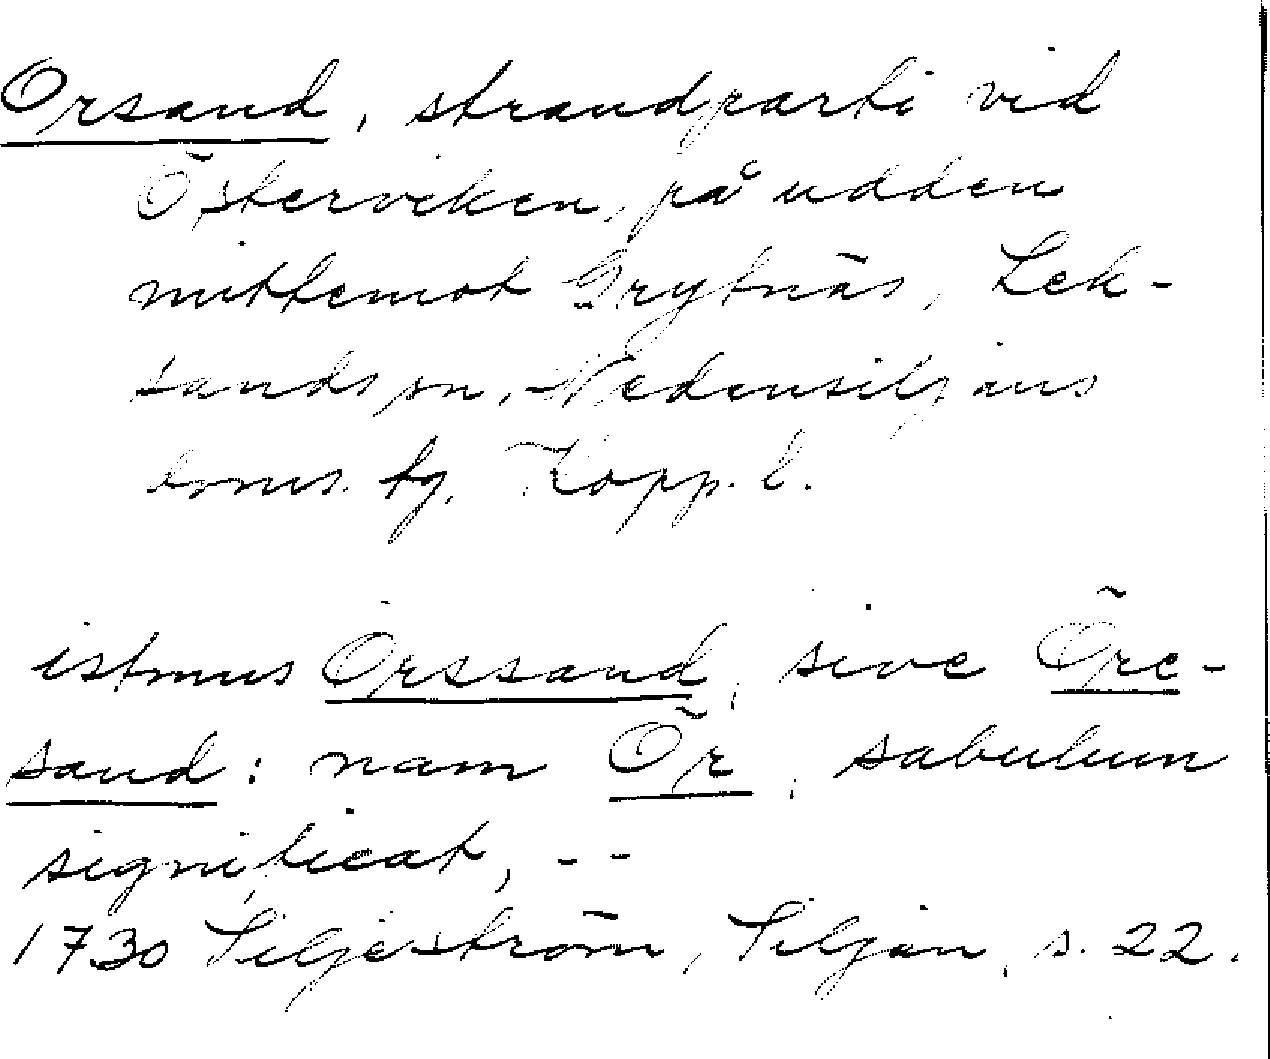 Orsand, strandparti vid
Österviken, på udden
mittemot Grytnäs, Lek-
sands sn, Nedansiljans
doms. tg, Kopp. l.
istmus Orssand, sive Öre-
sand: nam Ör, sabulum
significat, --
1730 Siljeström, Siljan, s. 22.